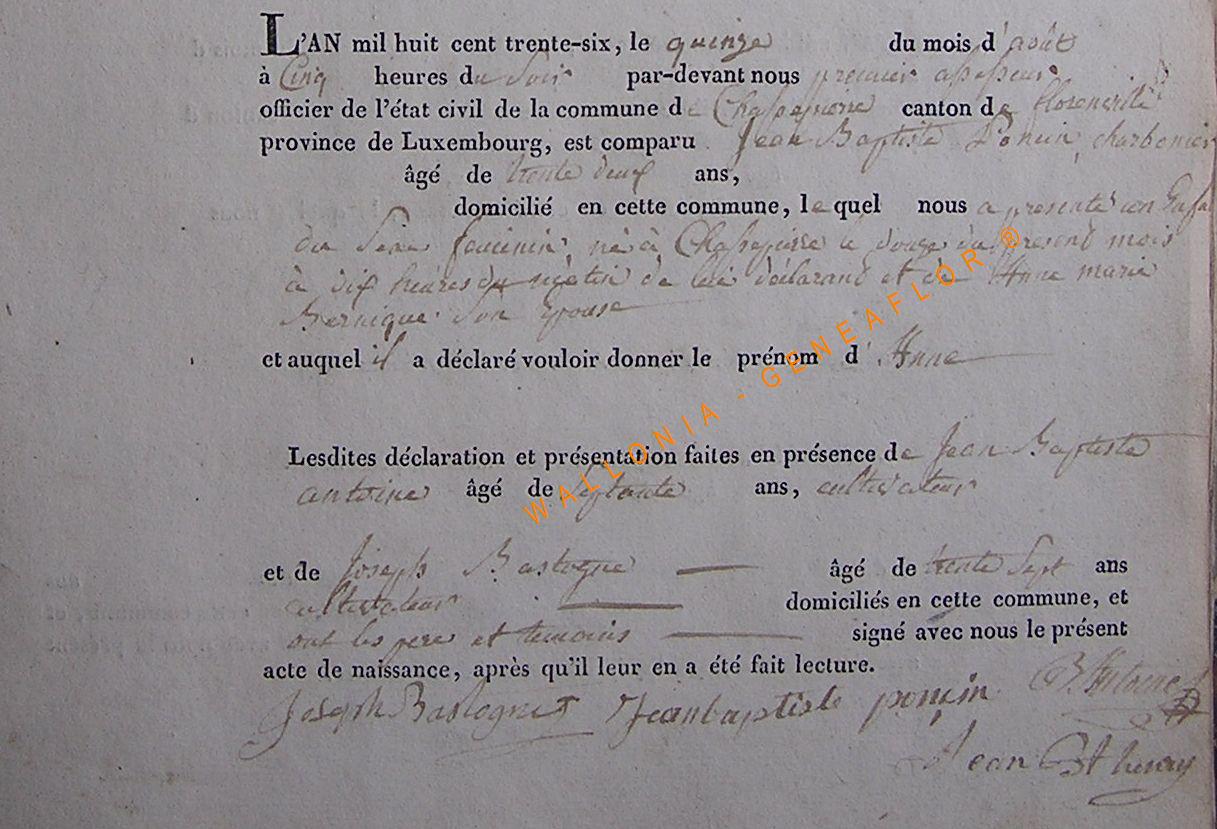 L'AN mil huit cent trente-six, le quinze du mois d'août
à Cinq heures du Soir par-devant nous premier assesseur
officier de l'état civil de la commune de Chassepierre canton de florenville
province de Luxembourg, est comparu Jean Baptiste Ponein, charbonier
âgé de trente deux ans,
domicilié en cette commune, le quel nous a presenté un Enfa
du Sexe feminin né à Chassepierre le douze du present mois
à dix heures du matin de lui déclarant et de Anne marie
Bernique son Epouse
et auquel il a déclaré vouloir donner le prénom d'Anne
Lesdites déclaration et présentation faites en présence de Jean Baptiste
antoine âgé de Septante ans, cultivateur
et de Joseph Bastogne âgé de trente Sept ans
cultivateur domiciliés en cette commune, et
ont les pere et temoins signé avec nous le présent
acte de naissance, après qu'il leur en a été fait lecture.
Joseph Bastogne Jeanbaptiste ponsin B. Antoine
Jean Bt henry
WALLONIA - GENEAFLOR ®